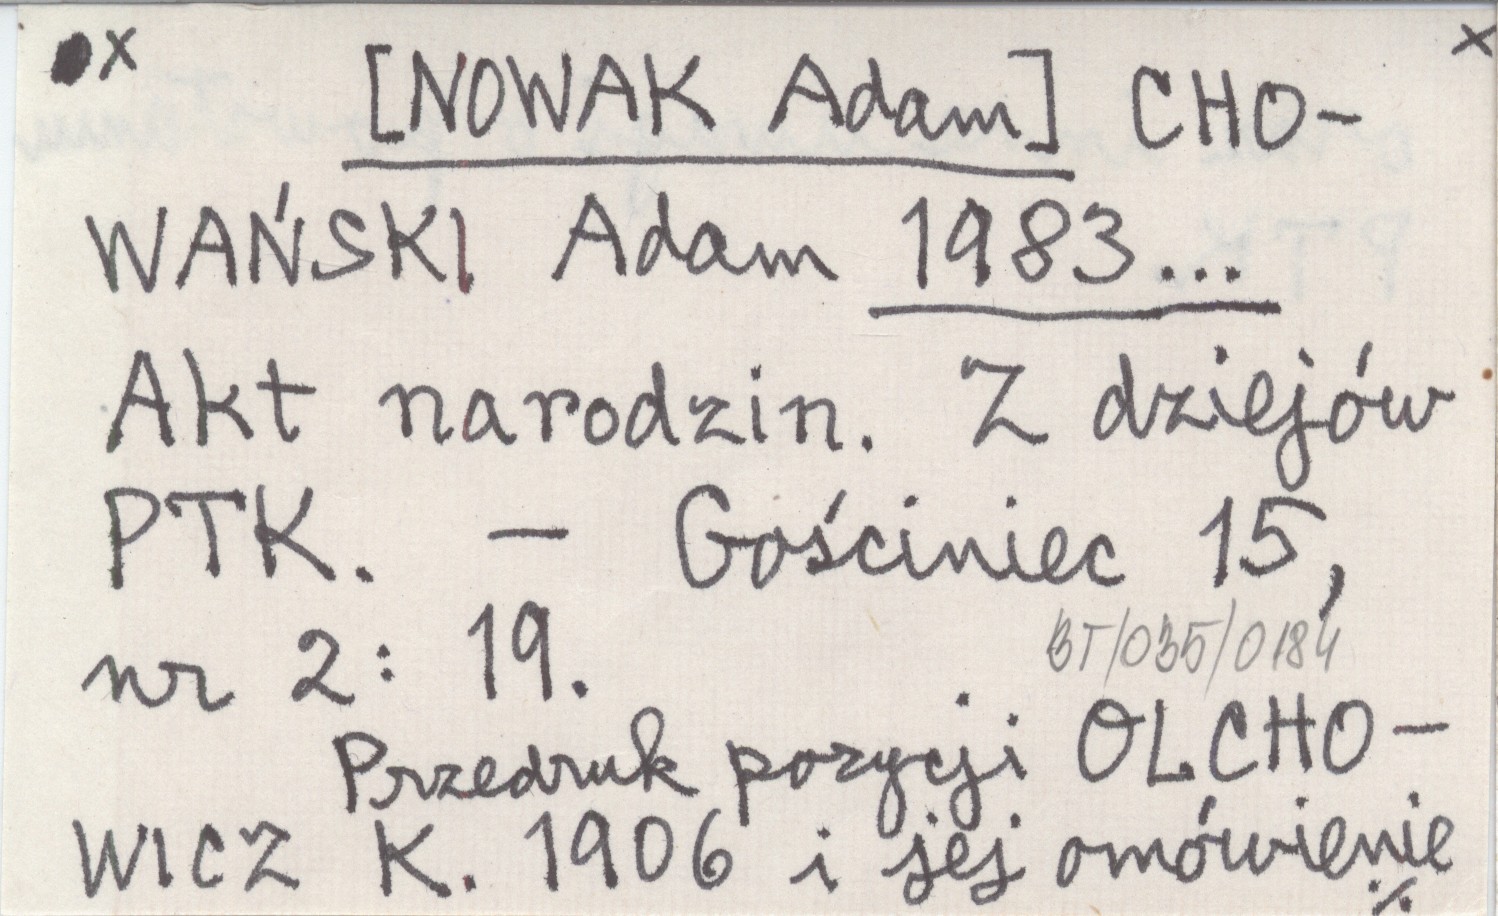 x x
[NOWAK Adam] CHO-
WAŃSKI Adam 1983...
Akt narodzin. Z dziejów
PTK. – Gościniec 15,
nr 2: 19.
BT/035/0184
Przedruk pozycji OLCHO-
WICZ K. 1906 i jej omówienie
./.